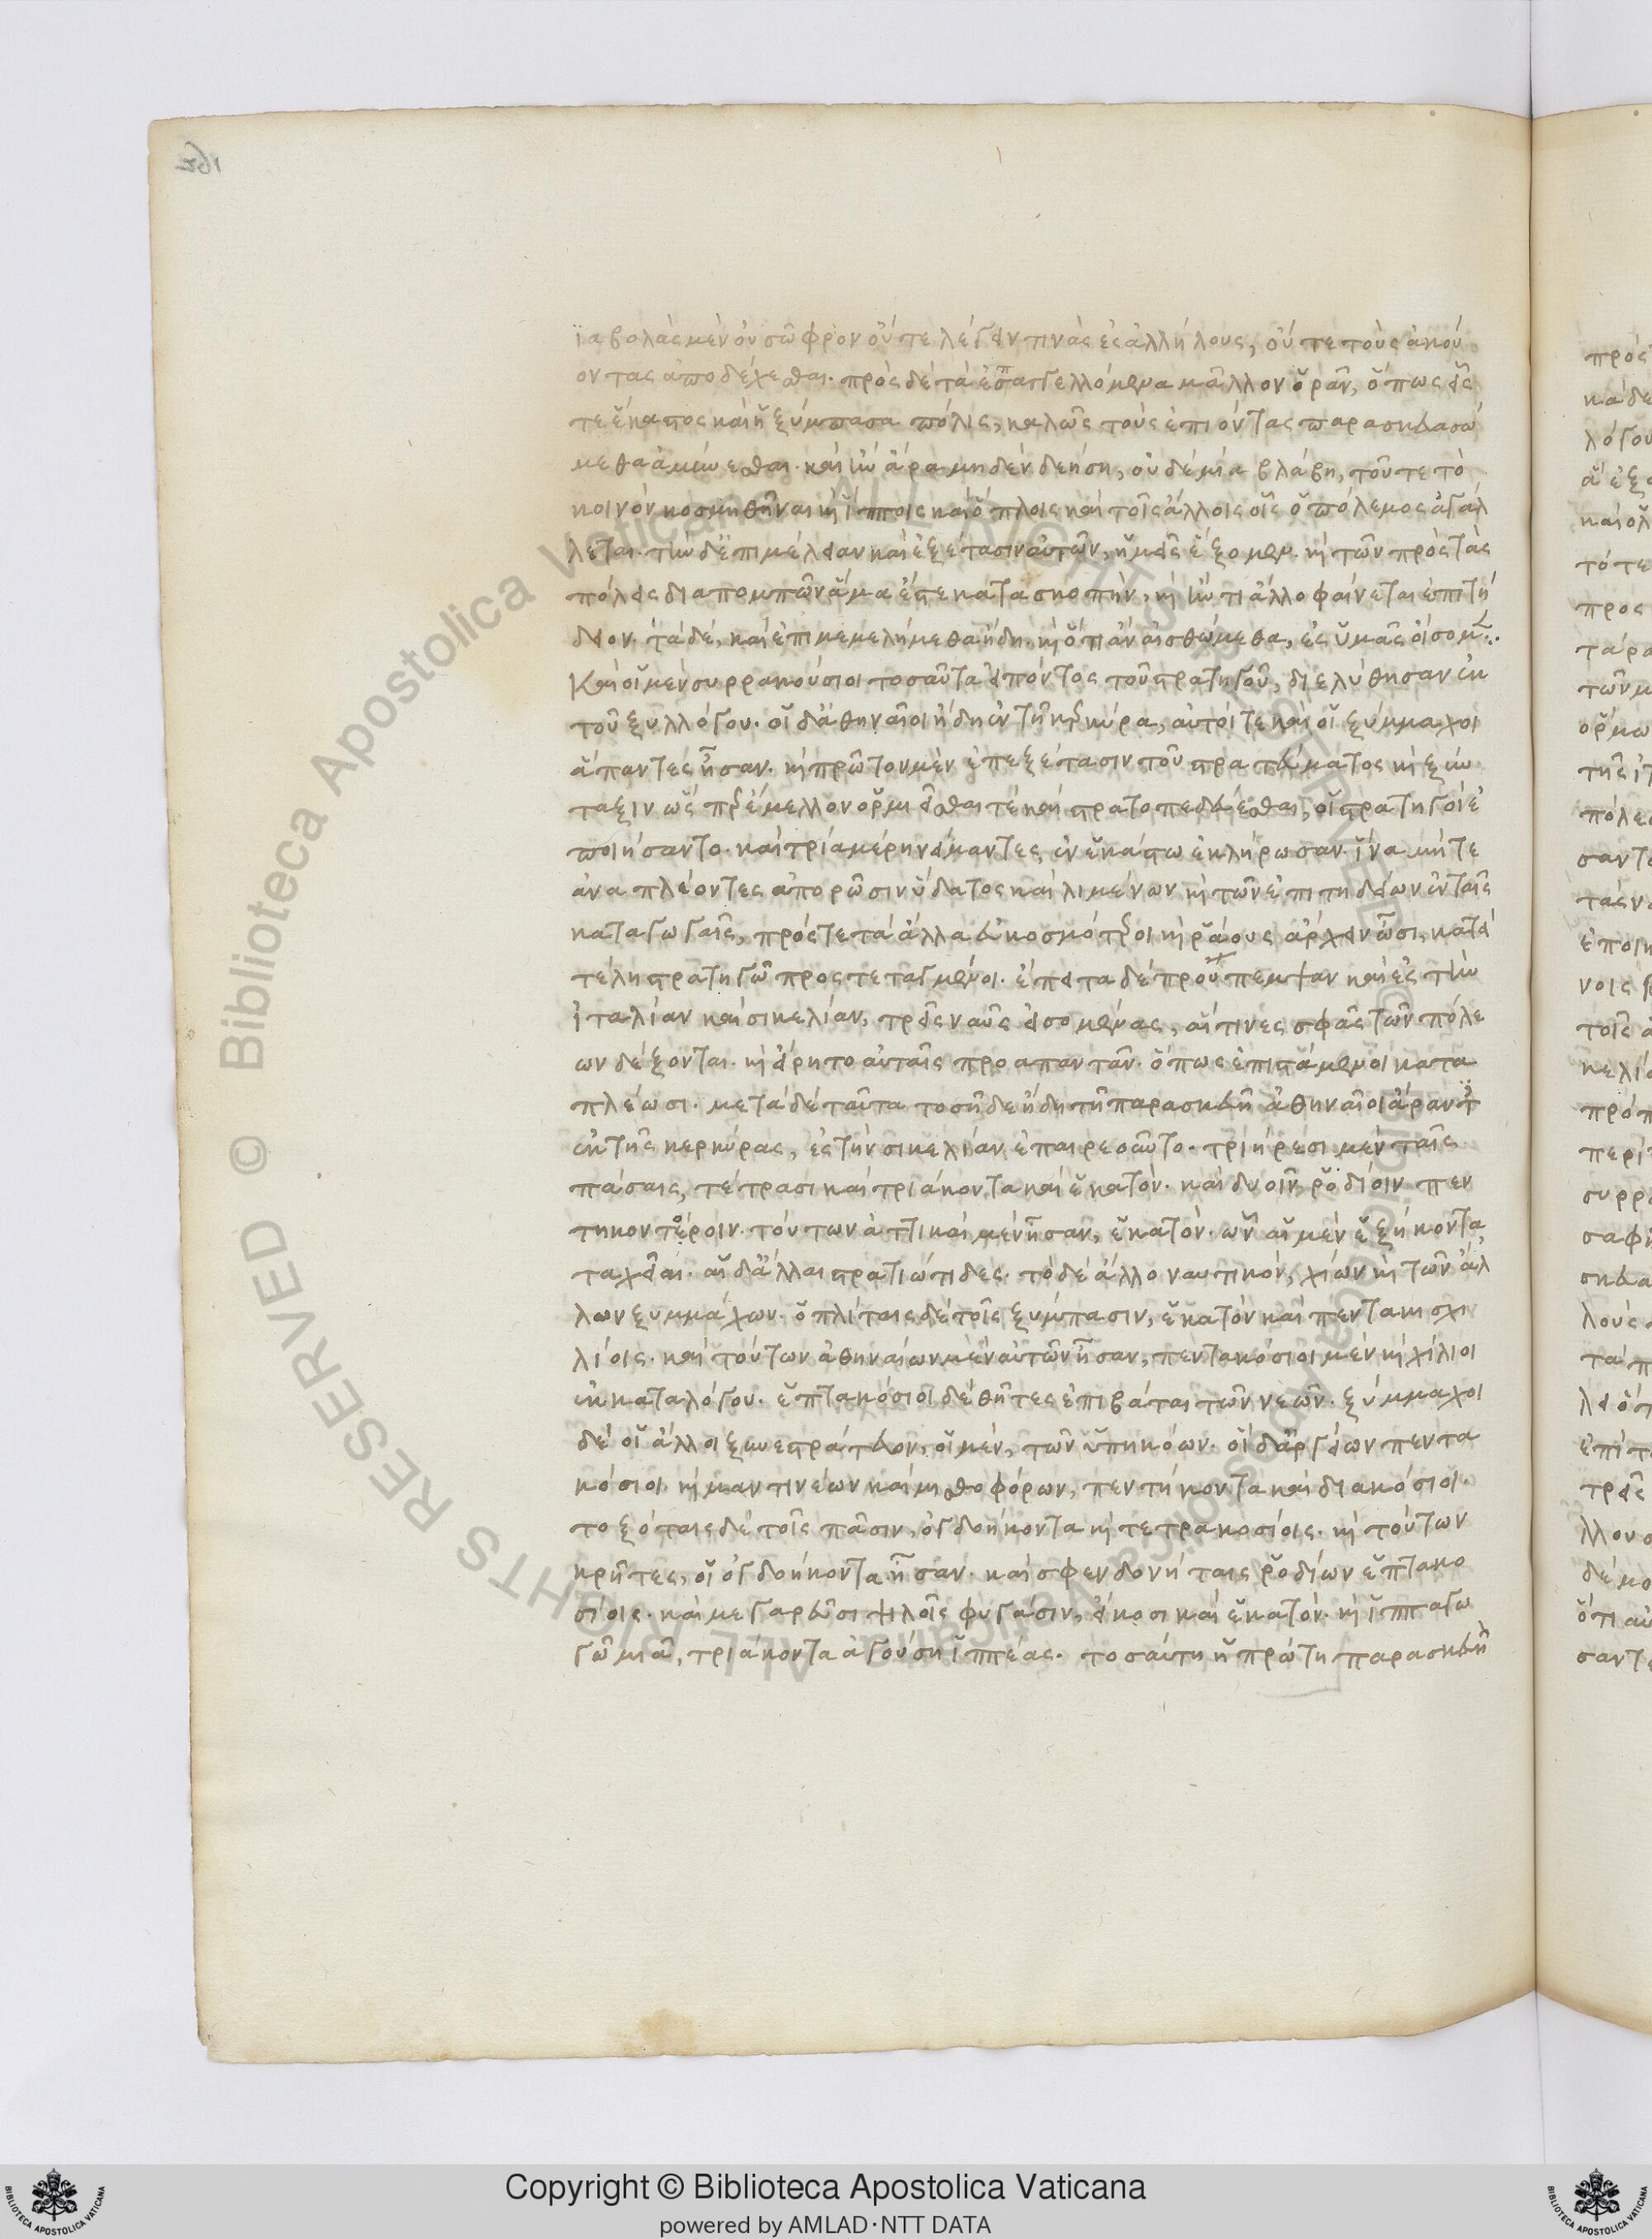 ϊαβολὰς μὲν οὐ σῶφρον οὔτε λέγειν τινὰς ἐς ἀλλήλους, οὔτε τοὺς ἀκού
οντας ἀποδέχεσθαι. πρὸς δὲ τὰ ἐσαγγελλόμενα μᾶλλον ὁρᾶν, ὅπως εἷς
τε ἕκαστος καὶ ἡ ξύμπασα πόλις, καλῶς τοὺς ἐπιόντας παρασκευασώ
μεθα ἀμύνεσθαι. καὶ ἢν ἄρα μηδὲν δεήσῃ, οὐδεμία βλάβη, τοῦ τε τὸ
κοινὸν κοσμηθῆναι καὶ ἵπποις καὶ ὅπλοις καὶ τοῖς ἄλλοις οἷς ὁ πόλεμος ἀγάλ
λεται. τὴν δ' ἐπιμέλειαν καὶ ἐξέτασιν αὐτῶν, ἡμεῖς ἕξομεν. καὶ τῶν πρὸς τὰς
πόλεις διαπομπῶν ἅμα ἔς τε κατασκοπὴν, καὶ ἤν τι ἄλλο φαίνεται ἐπιτή
δειον. τὰ δὲ, καὶ ἐπιμεμελήμεθα ἤδη. καὶ ὅτι ἂν αἰσθώμεθα, ἐς ὑμᾶς οἴσομεν.
Καὶ οἱ μὲν συρρακούσιοι τοσαῦτα εἰπόντος τοῦ στρατηγοῦ, διελύθησαν ἐκ
τοῦ ξυλλόγου. οἱ δ' ἀθηναῖοι ἤδη ἐν τῇ κερκύρα, αὐτοί τε καὶ οἱ ξύμμαχοι
ἅπαντες ἦσαν. καὶ πρῶτον μὲν ἐπεξέτασιν τοῦ στρατεύματος καὶ ξύν
ταξιν ὥσπερ ἔμελλον ὁρμιεῖσθαί τε καὶ στρατοπεδεύεσθαι, οἱ στρατηγοὶ ἐ
ποιήσαντο. καὶ τρία μέρη νείμαντες, ἓν ἑκάστω ἐκλήρωσαν. ἵνα μήτε
ἀναπλέοντες ἀπορῶσιν ὕδατος καὶ λιμένων καὶ τῶν ἐπιτηδείων ἐν ταῖς
καταγωγαῖς, πρός τε τὰ ἄλλα εὐκοσμότεροι καὶ ῥᾴους ἄρχειν ὦσι, κατὰ
τέλη στρατηγῶ προςτεταγμένοι. ἔπειτα δὲ προὔπεμψαν καὶ ἐς τὴν
ἰταλίαν καὶ σικελίαν, τρεῖς ναῦς εἰσομένας, αἵτινες σφᾶς τῶν πόλε
ων δέξονται. καὶ εἴρητο αὐταῖς προαπαντᾶν. ὅπως ἐπιστάμενοι κατα
πλέωσι. μετὰ δὲ ταῦτα τοσῇδε ἤδη τῇ παρασκευῇ ἀθηναῖοι ἄραντες
ἐκ τῆς κερκύρας, ἐς τὴν σικελίαν ἐπαιρεοῦντο. τριήρεσι μὲν ταῖς
πάσαις, τέτρασι καὶ τριάκοντα καὶ ἑκατόν. καὶ δυοῖν ῥοδίοιν πεν
τηκοντόροιν. τούτων ἀττικαὶ μὲν ἦσαν, ἑκατόν. ὧν αἱ μὲν ἑξήκοντα,
ταχεῖαι. αἱ δ' ἄλλαι στρατιώτιδες. τὸ δὲ ἄλλο ναυτικὸν, χίων καὶ τῶν ἄλ
λων ξυμμάχων. ὁπλίταις δὲ τοῖς ξύμπασιν, ἑκατὸν καὶ πεντακισχι
λίοις. καὶ τούτων ἀθηναίων μὲν αὐτῶν ἦσαν, πεντακόσιοι μὲν καὶ χίλιοι
ἐκ καταλόγου. ἑπτακόσιοι δὲ θῆτες ἐπιβάται τῶν νεῶν. ξύμμαχοι
δὲ οἱ ἄλλοι ξυνεστράτευον, οἱ μὲν, τῶν ὑπηκόων. οἱ δ' ἀργείων πεντα
κόσιοι καὶ μαντινέων καὶ μισθοφόρων, πεντήκοντα καὶ διακόσιοι.
τοξόταις δὲ τοῖς πᾶσιν, ὀγδοήκοντα καὶ τετρακοσίοις. καὶ τούτων
κρῆτες, οἱ ὀγδοήκοντα ἦσαν. καὶ σφενδονήταις ῥοδίων ἑπτακο
σίοις. καὶ μεγαρεῦσι ψιλοῖς φυγάσιν, εἴκοσι καὶ ἑκατόν. καὶ ἱππαγω
γῶ μιᾷ, τριάκοντα ἀγούση ἱππέας. τοσαύτη ἡ πρώτη παρασκευὴ
Copyright © Biblioteca Apostolica Vaticana
powered by AMLAD·NTT DATA